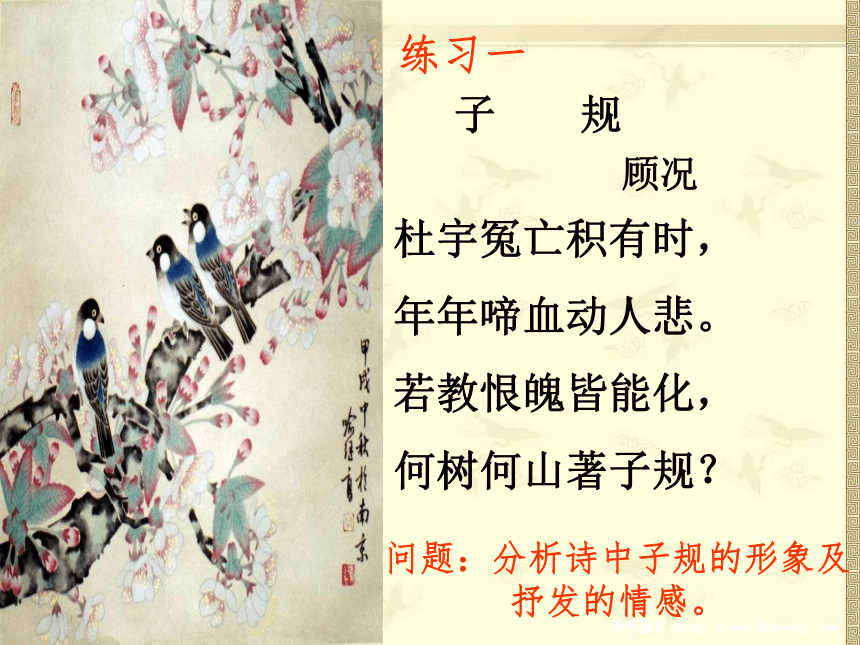 练习一
子 规
顾况
杜宇冤亡积有时，
年年啼血动人悲。
若教恨魄皆能化，
何树何山著子规？
问题：分析诗中子规的形象及
抒发的情感。
甲戌中秋於南京